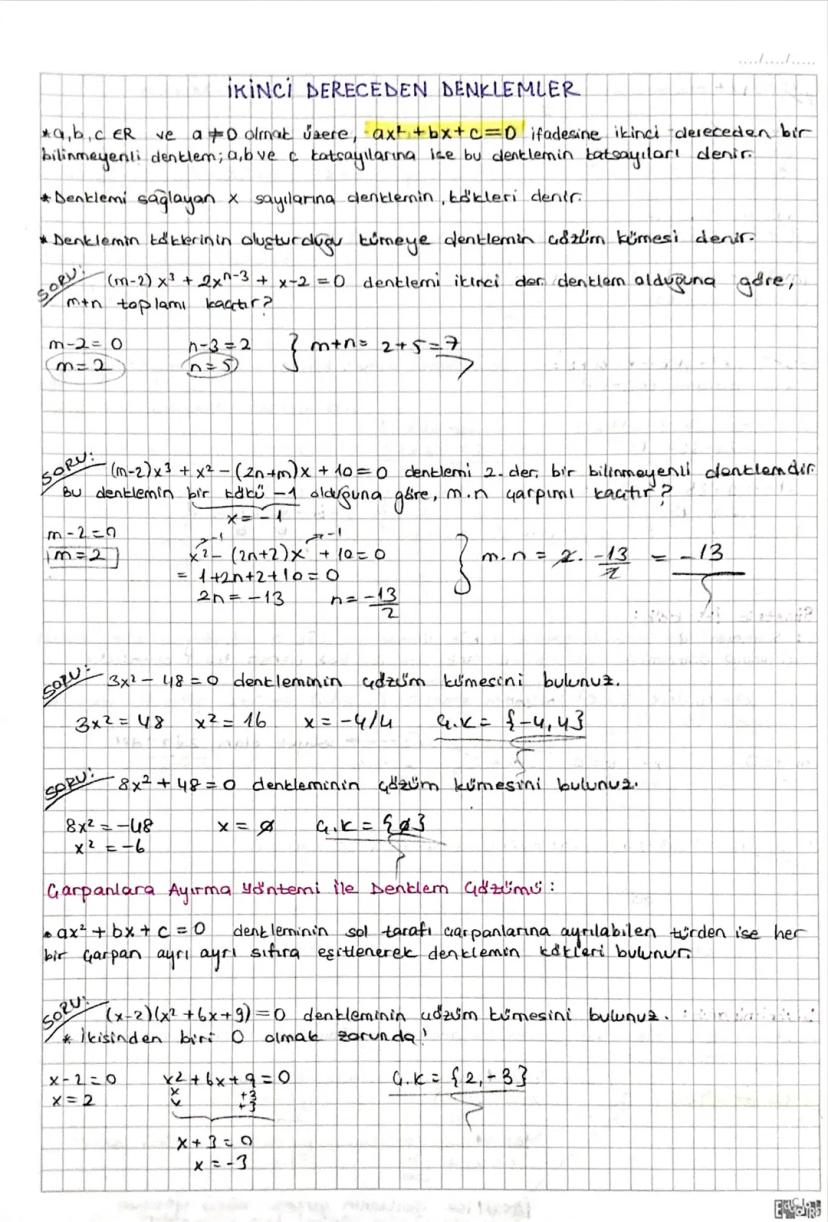 ...../...../.....
İKİNCİ DERECEDEN DENKLEMLER
*a,b,c ∈R ve a≠0 olmak üzere, ax²+bx+c=0 ifadesine ikinci dereceden bir
bilinmeyenli denklem; a,b ve c katsayılarına ise bu denklemin katsayıları denir.
*Denklemi sağlayan x sayılarına denklemin, kökleri denir.
*Denklemin köklerinin oluşturduğu kümeye denklemin çözüm kümesi denir.
SORU: (m-2)x³ + 2xⁿ⁻³ + x-2 =0 denklemi ikinci der. denklem olduğuna göre,
m+n toplamı kaçtır?
m-2=0 n-3=2 } m+n= 2+5=7
m=2 n=5
SORU: (m-2)x³ + x² - (2n+m)x + 10=0 denklemi 2. der. bir bilinmeyenli denklemdir.
Bu denklemin bir kökü -1 olduğuna göre, m.n çarpımı kaçtır?
x=-1
m-2=0 -1 -1
m=2 x² - (2n+2)x + 10=0 } m.n = 2. -13/2 = -13
= 1+2n+2+10=0
2n=-13 n=-13/2
SORU: 3x²-48=0 denkleminin çözüm kümesini bulunuz.
3x²=48 x²=16 x=-4/4 Ç.K= {-4,4}
SORU: 8x²+48=0 denkleminin çözüm kümesini bulunuz.
8x²=-48 x=∅ Ç.K={∅}
x²=-6
Çarpanlara Ayırma Yöntemi ile Denklem Çözümü:
•ax²+bx+c=0 denkleminin sol tarafı çarpanlarına ayrılabilen türden ise her
bir çarpan ayrı ayrı sıfıra eşitlenerek denklemin kökleri bulunur.
SORU: (x-2)(x²+6x+9)=0 denkleminin çözüm kümesini bulunuz.
* İkisinden biri 0 olmak zorunda!
x-2=0 x²+6x+9=0 Ç.K={2,-3}
x=2 x +3
x +3
x+3=0
x=-3